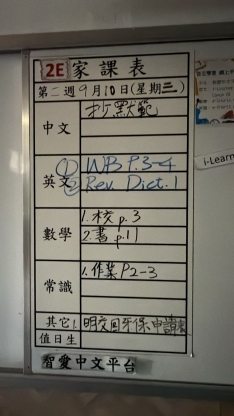 2E 家課表
第二週9月10日(星期三)
中文 抄默範
英文 ① WB P.3-4
② Rev. Dict. 1
數學 1. 校 p.3
2. 書 p.11
常識 1. 作業 P2-3
其它 1. 明交回牙保申請表
值日生
智愛中文平台
i-Learn